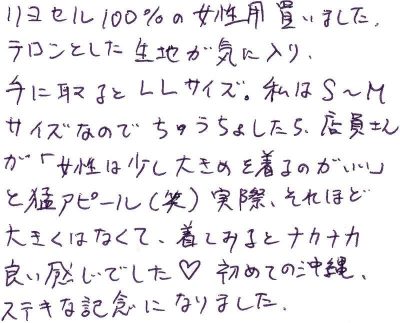 リヨセル100%の女性用買いました。
テロンとした生地が気に入り、
手に取るとLLサイズ。私はS～M
サイズなのでちゅうちょしたら、店員さん
が「女性は少し大きめを着るのがいい」
と猛アピール(笑)実際、それほど
大きくはなくて、着てみるとナカナカ
良い感じでした♡初めての沖縄、
ステキな記念になりました。